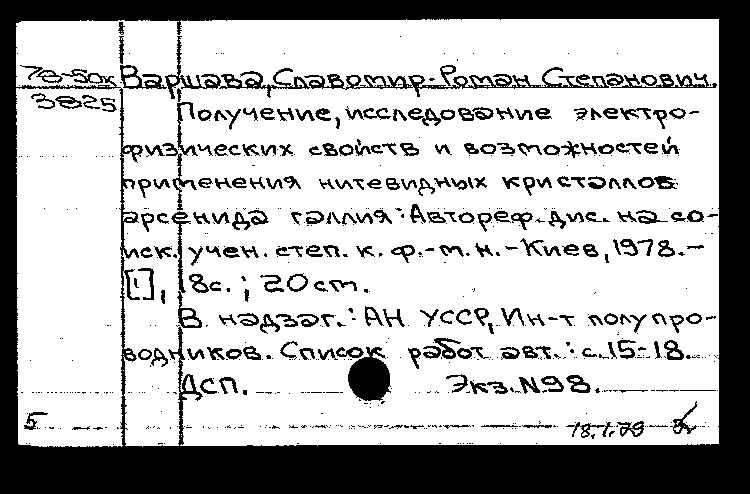 78-50к Варшава, Славомир-Роман Степанович.
3825 Получение, исследование электро-
физических свойств и возможностей
применения нитевидных кристаллов
арсенида галлия: Автореф. дис. на со-
иск. учен. степ. к. ф.-м. н. - Киев, 1978. -
[1], 18с.; 20 cm.
В надзаг.: АН УССР, Ин-т полупро-
водников. Список работ авт.: с. 15-18.
ДСП. Экз. N98.
5 18.1.79